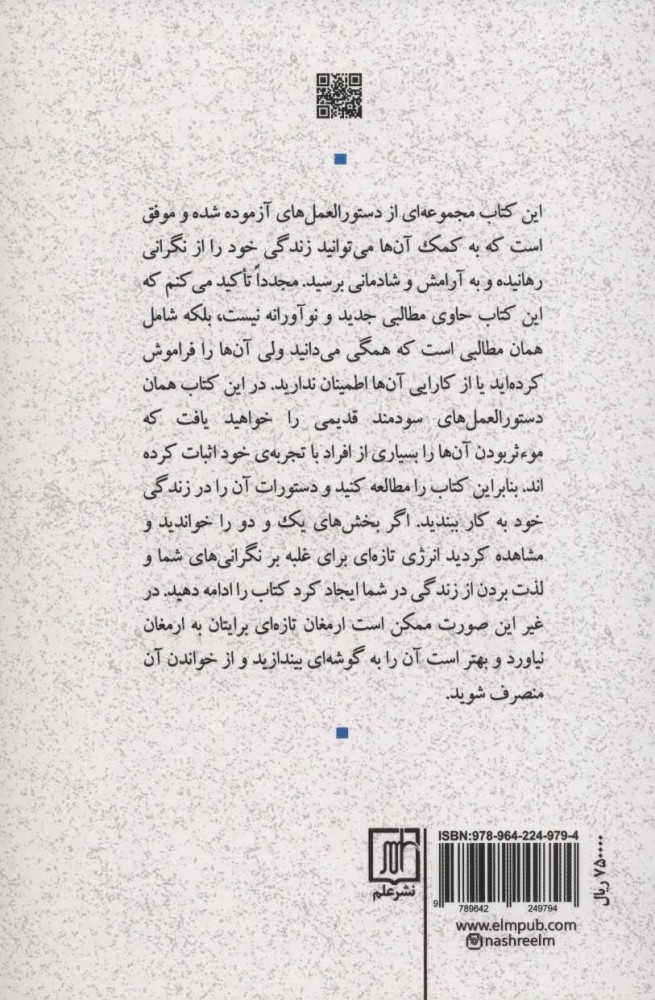 این کتاب مجموعه‌ای از دستورالعمل‌های آزموده شده و موفق
است که به کمک آن‌ها می‌توانید زندگی خود را از نگرانی
رهانیده و به آرامش و شادمانی برسید. مجدداً تأکید می‌کنم که
این کتاب حاوی مطالبی جدید و نوآورانه نیست، بلکه شامل
همان مطالبی است که همگی می‌دانید ولی آن‌ها را فراموش
کرده‌اید یا از کارایی آن‌ها اطمینان ندارید. در این کتاب همان
دستورالعمل‌های سودمند قدیمی را خواهید یافت که
موءثربودن آن‌ها را بسیاری از افراد با تجربه‌ی خود اثبات کرده
اند. بنابراین کتاب را مطالعه کنید و دستورات آن را در زندگی
خود به کار ببندید. اگر بخش‌های یک و دو را خواندید و
مشاهده کردید انرژی تازه‌ای برای غلبه بر نگرانی‌های شما و
لذت بردن از زندگی در شما ایجاد کرد کتاب را ادامه دهید. در
غیر این صورت ممکن است ارمغان تازه‌ای برایتان به ارمغان
نیاورد و بهتر است آن را به گوشه‌ای بیندازید و از خواندن آن
منصرف شوید.
ISBN:978-964-224-979-4
9 789642 249794
۷۵۰۰۰۰ ریال
علم
نشر علم
www.elmpub.com
nashreelm